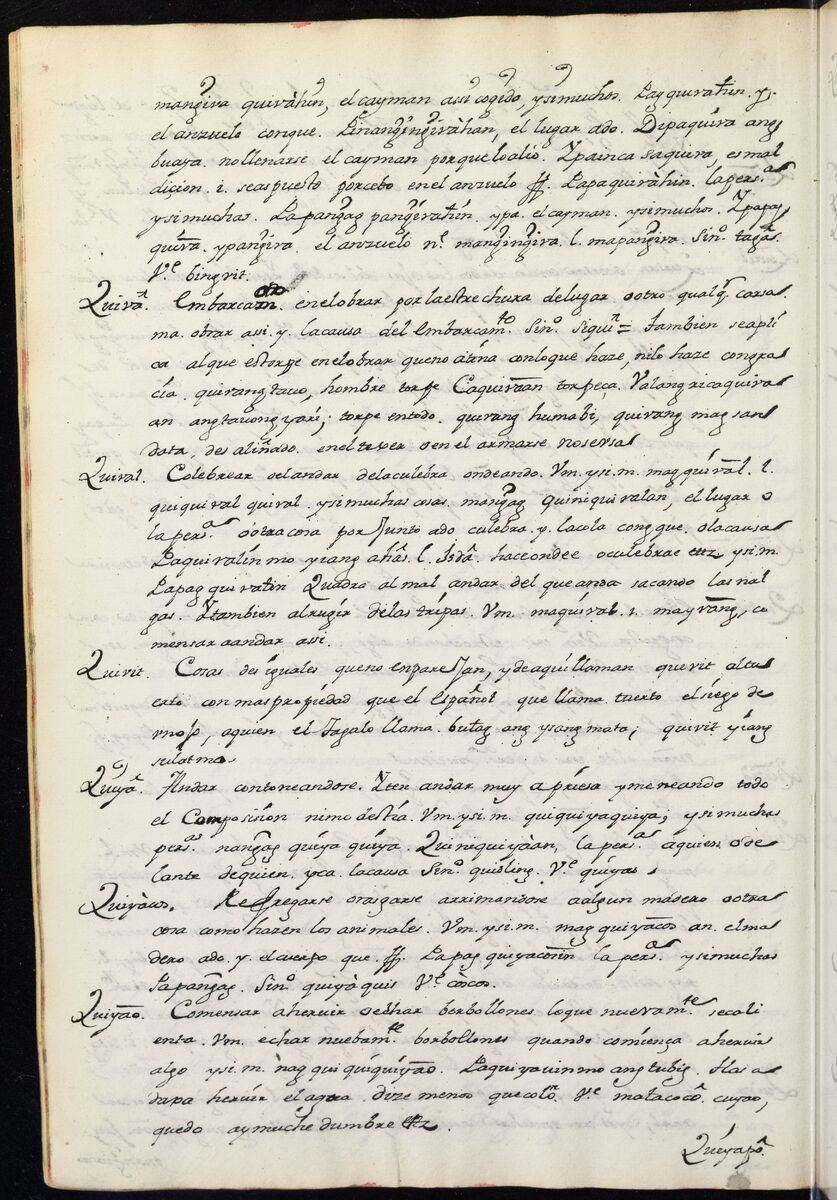 mangira quiràhin, el cayman assi cogido, ysimuchos. Pagquirahin. y.
el anzuelo conque. Pinangingiràhan, el lugar ado. Dipaquira ang
buaya. nollenarse el cayman porqueloalió. Ypainca saquira, es mal
dicion. i. seaspuesto porcebo enel anzuelo ff. Papaquiràhin. lapersª
ysimuchas. Papangag pangirahin. ypa. el cayman. ysimuchos. Ypapag
quira. ypangira. el anzuelo nª. mangingira. l. mapangira. Sinº. tagâ.
Vᵉ bingvit.
Quirâ. Embarcarse. enelobrar porlaestrechura delugar ootro qualqª. cossa.
ma. obrar assi. y. lacausa del embarcamᵗᵒ. Sinº. siquiᵖ = tambien seapli
ca alque estorpe enelobrar queno atina conloque haze, nilo haze congra
cia. quirangtauo, hombre torpe Caquiraan torpeça. Valangricaquira
an angtauong yari; torpe entodo. quirang humabi, quirang magsan
data, desaliñado. enel texer oen el armarse nosersa
Quiral. Colebrear oelandar delaculebra ondeando. Vm. ysi.m. magquiral. l.
quiquiral quiral. ysimuchas cosas. mangag. Quiniquiralan, el lugar o
la persª. ootracosa por Junto ado culebra. y. lacola congque. olacausa
Paquiralin mo yiang ahâs. l. isdâ. haceondee oculebrae etz ysi.m.
Papag quiralin Quadra al mal andar del que anda sacando las nal
gas. Ytambien alrugir delas tripas. Vm. maquiral. i. mayrang, co
mensar aandar assi.
Quirit. Cosas desiguales queno enpareJan, ydeaqui llaman quirit altu
erto con mas propiedad que el Español que llama tuerto elsiego de
vnojo, aquien el Tagalo llama. bulag ang ysang mata; quirit yiang
sulatmo
Quiyâ. Andar contoneandose. Yten andar muy apriesa ymeneando todo
el Composision nimodestia. Vm. ysi.m. quiquiyaquiya; ysimuchas
persª. nangag quiya quiya. Quiniquiyàan, la persª aquien ode
lante dequien. yca. lacausa Sinº. quisling. Vᵉ. quiyas
Quiyàcos. Refregarse orasgarse arrimandose aalgun madero ootra
cosa como hazen los animales. Vm. ysi.m. magquiyacos an. elma
dero ado. y. elcuerpo que. ff. Papagquiyacosin la persª ysimuchas
Papangag. Sinº. quiyàquis Vᵉ còscos.
Quiyao. Comensar aheruir oechar borbollones loque nuevamᵗᵉ. secali
enta. Vm. echar nuebamᵗᵉ. borbollones quando comiença aheruir
algo ysi.m. nag quiquiquiyao. Paquiyauinmo angtubig. Has a
dapa heruir elagua. dize menos quecolô. Vᵉ. matacocô. cuyao,
quedo aymuchedumbre etz.
Quiyapô.